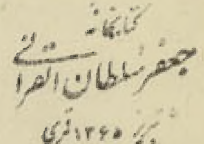 کتابخانهٔ
جعفر سلطان القرائی
تبریز ۱۳۶۵ قمری